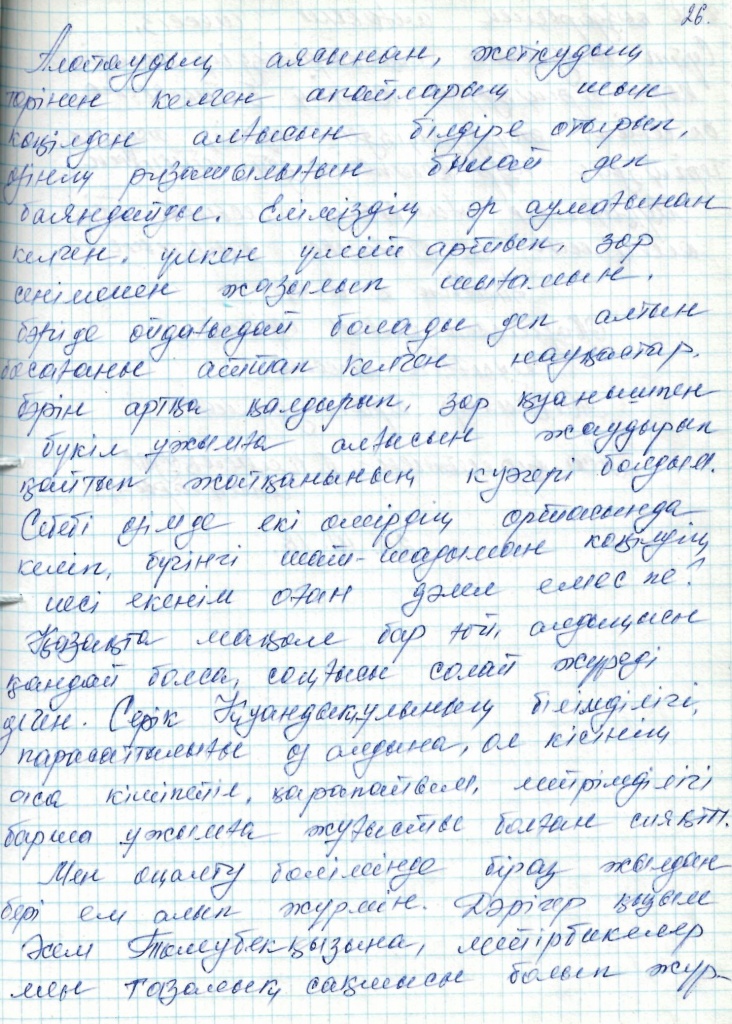 26.
Алостаудың аясынан, жеткудың
төрінен келген апайлардың шын
көңілден алғысын білдіре отырып,
өзінің ризашылығын былай деп
баяндайды. Еліміздің әр аумағынан
келген, үлкен үміт артып, зор
сеніммен жазылып шығамын,
бәріде ойдағыдай болады деп алтын
босағаны аттап келген науқастар,
бәрін артқа қалдырып, зор қуанышпен
бүкіл ұжымға алғысын жаудырып
қайтып жатқанының куәгері болдым.
Себебі өзімде екі өмірдің ортасында
келіп, бүгінгі шат-шадыман көңілдің
иесі екенім оған дәлел емес пе?
Қазақта мақал бар ғой, алдыңғысы
қандай болса, соңғысы солай жүреді
деген. Серік Қуандықұлының білімділігі,
парасаттылығы өз алдына, ол кісінің
аса кішіпейіл, қарапайым, мейрімділігі
барша ұжымға жұғысты болған сияқты.
Мен оңалту бөлімінде біраз жылдан
бері ем алып жүрмін. Дәрігер қызым
Әсем Темубекқызына, мейірбикелер
мен тазалық сақшысы болып жүр-